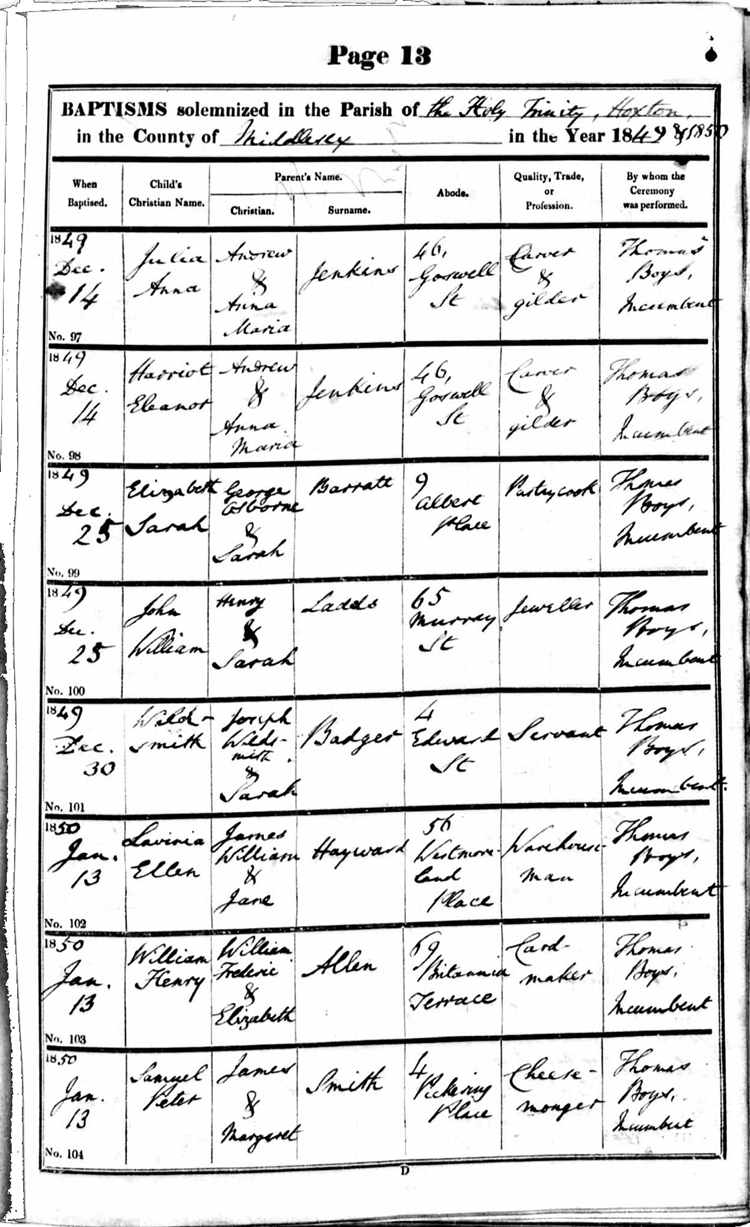 Page 13
BAPTISMS solemnized in the Parish of the Holy Trinity, Hoxton,
in the County of Middlesex in the Year 1849 & 1850
When Baptised.
Child's Christian Name.
Parent's Name.
Christian.
Surname.
Abode.
Quality, Trade, or Profession.
By whom the Ceremony was performed.
1849 Dec. 14
No. 97
Julia Anna
Andrew & Anna Maria
Jenkins
46, Goswell St
Carver & gilder
Thomas Boys, Incumbent
1849 Dec. 14
No. 98
Harriot Eleanor
Andrew & Anna Maria
Jenkins
46, Goswell St
Carver & gilder
Thomas Boys, Incumbent
1849 Dec. 25
No. 99
Elizabeth Sarah
George Osborne & Sarah
Barratt
9 Albert Place
Pastrycook
Thomas Boys, Incumbent
1849 Dec. 25
No. 100
John William
Henry & Sarah
Ladds
65 Murray St
Jeweller
Thomas Boys, Incumbent
1849 Dec. 30
No. 101
Wild-smith
Joseph Wilds-mith & Sarah
Badger
4 Edward St
Servant
Thomas Boys, Incumbent.
1850 Jan. 13
No. 102
Lavinia Ellen
James William & Jane
Hayward
56 Westmore-land Place
Warehouse-man
Thomas Boys, Incumbent
1850 Jan. 13
No. 103
William Henry
William Frederic & Elizabeth
Allen
69 Britannia Terrace
Card-maker
Thomas Boys, Incumbent
1850 Jan. 13
No. 104
Samuel Peter
James & Margaret
Smith
4 Pickering Place
Cheese-monger
Thomas Boys, Incumbent
D